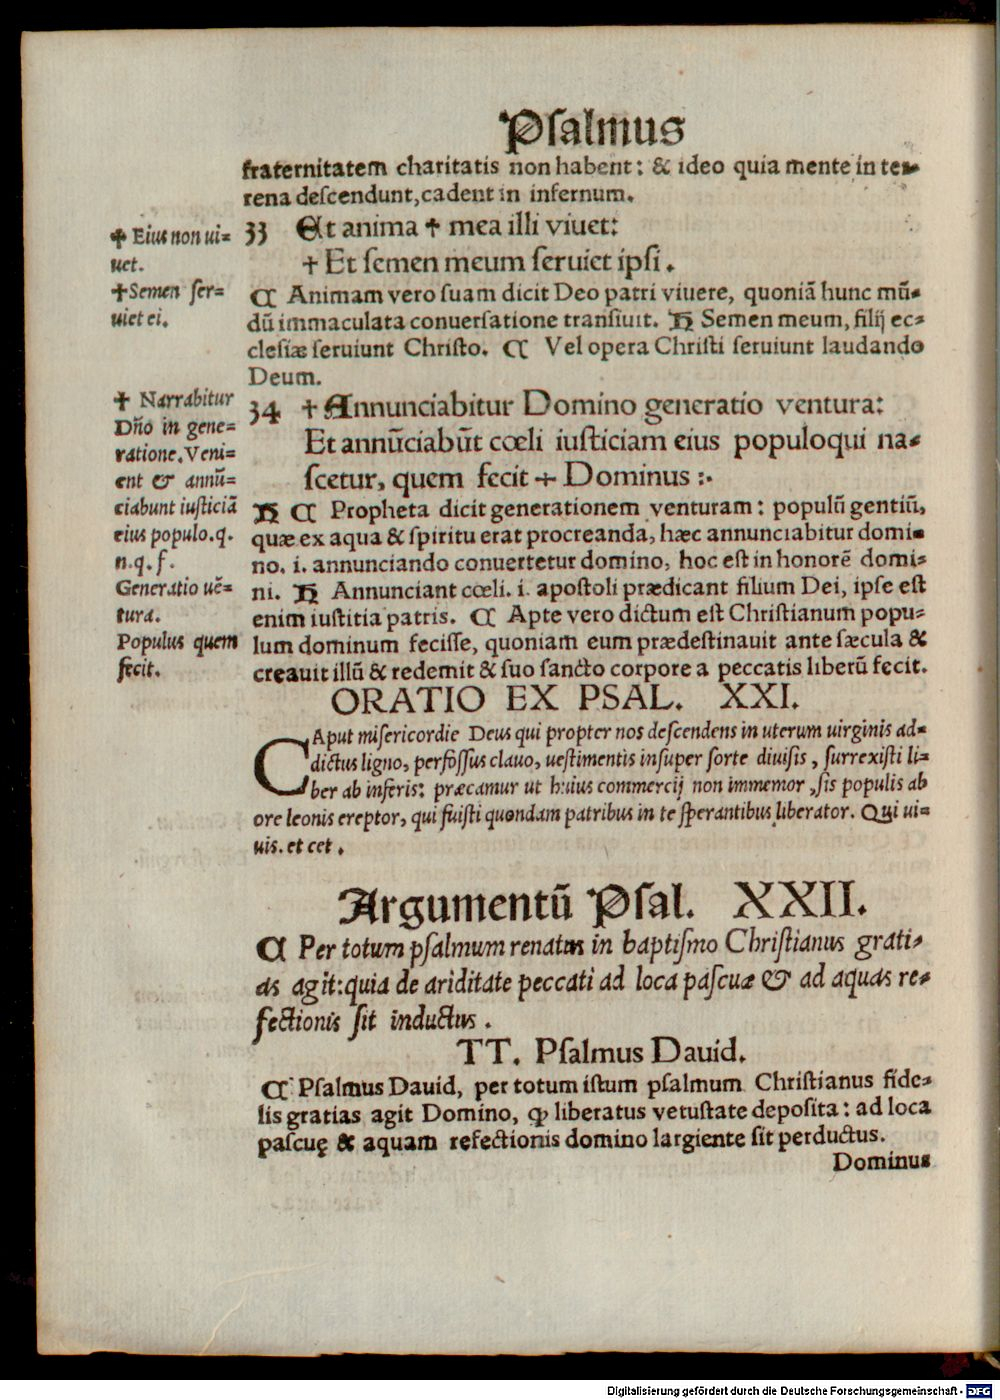 Psalmus
fraternitatem charitatis non habent: & ideo quia mente in ter
rena descendunt, cadent in infernum.
✝ Eius non ui=
uet.
33 Et anima ✝ mea illi viuet:
✝ Et semen meum seruiet ipsi.
✝Semen ser=
uiet ei.
C Animam vero suam dicit Deo patri viuere, quoniã hunc mũ-
dũ immaculata conuersatione transiuit. H Semen meum, filij ec-
clesiæ seruiunt Christo. C Vel opera Christi seruiunt laudando
Deum.
✝ Narrabitur
Dño in gene=
ratione. Veni=
ent & annũ=
ciabunt iusticiã
eius populo. q.
n. q. f.
Generatio uẽ=
tura.
Populus quem
fecit.
34 ✝ Annunciabitur Domino generatio ventura:
Et annũciabũt cœli iusticiam eius populo qui na-
scetur, quem fecit ✝ Dominus :.
H C Propheta dicit generationem venturam: populũ gentiũ,
quæ ex aqua & spiritu erat procreanda, hæc annunciabitur domi-
no. i. annunciando conuertetur domino, hoc est in honorẽ domi-
ni. H Annunciant cœli. i. apostoli prædicant filium Dei, ipse est
enim iustitia patris. C Apte vero dictum est Christianum popu-
lum dominum fecisse, quoniam eum prædestinauit ante sæcula &
creauit illũ & redemit & suo sancto corpore a peccatis liberũ fecit.
ORATIO EX PSAL. XXI.
CAput misericordie Deus qui propter nos descendens in uterum uirginis ad-
dictus ligno, perfossus clauo, uestimentis insuper sorte diuisis, surrexisti li=
ber ab inferis: præcamur ut huius commercij non immemor, sis populis ab
ore leonis ereptor, qui fuisti quondam patribus in te sperantibus liberator. Qui ui=
uis. et cet.
Argumentũ Psal. XXII.
C Per totum psalmum renatus in baptismo Christianus grati-
as agit: quia de ariditate peccati ad loca pascuæ & ad aquas re-
fectionis sit inductus.
TT. Psalmus Dauid.
C Psalmus Dauid, per totum istum psalmum Christianus fide-
lis gratias agit Domino, ꝙ liberatus vetustate deposita: ad loca
pascuę & aquam refectionis domino largiente sit perductus.
Dominus
Digitalisierung gefördert durch die Deutsche Forschungsgemeinschaft - DFG